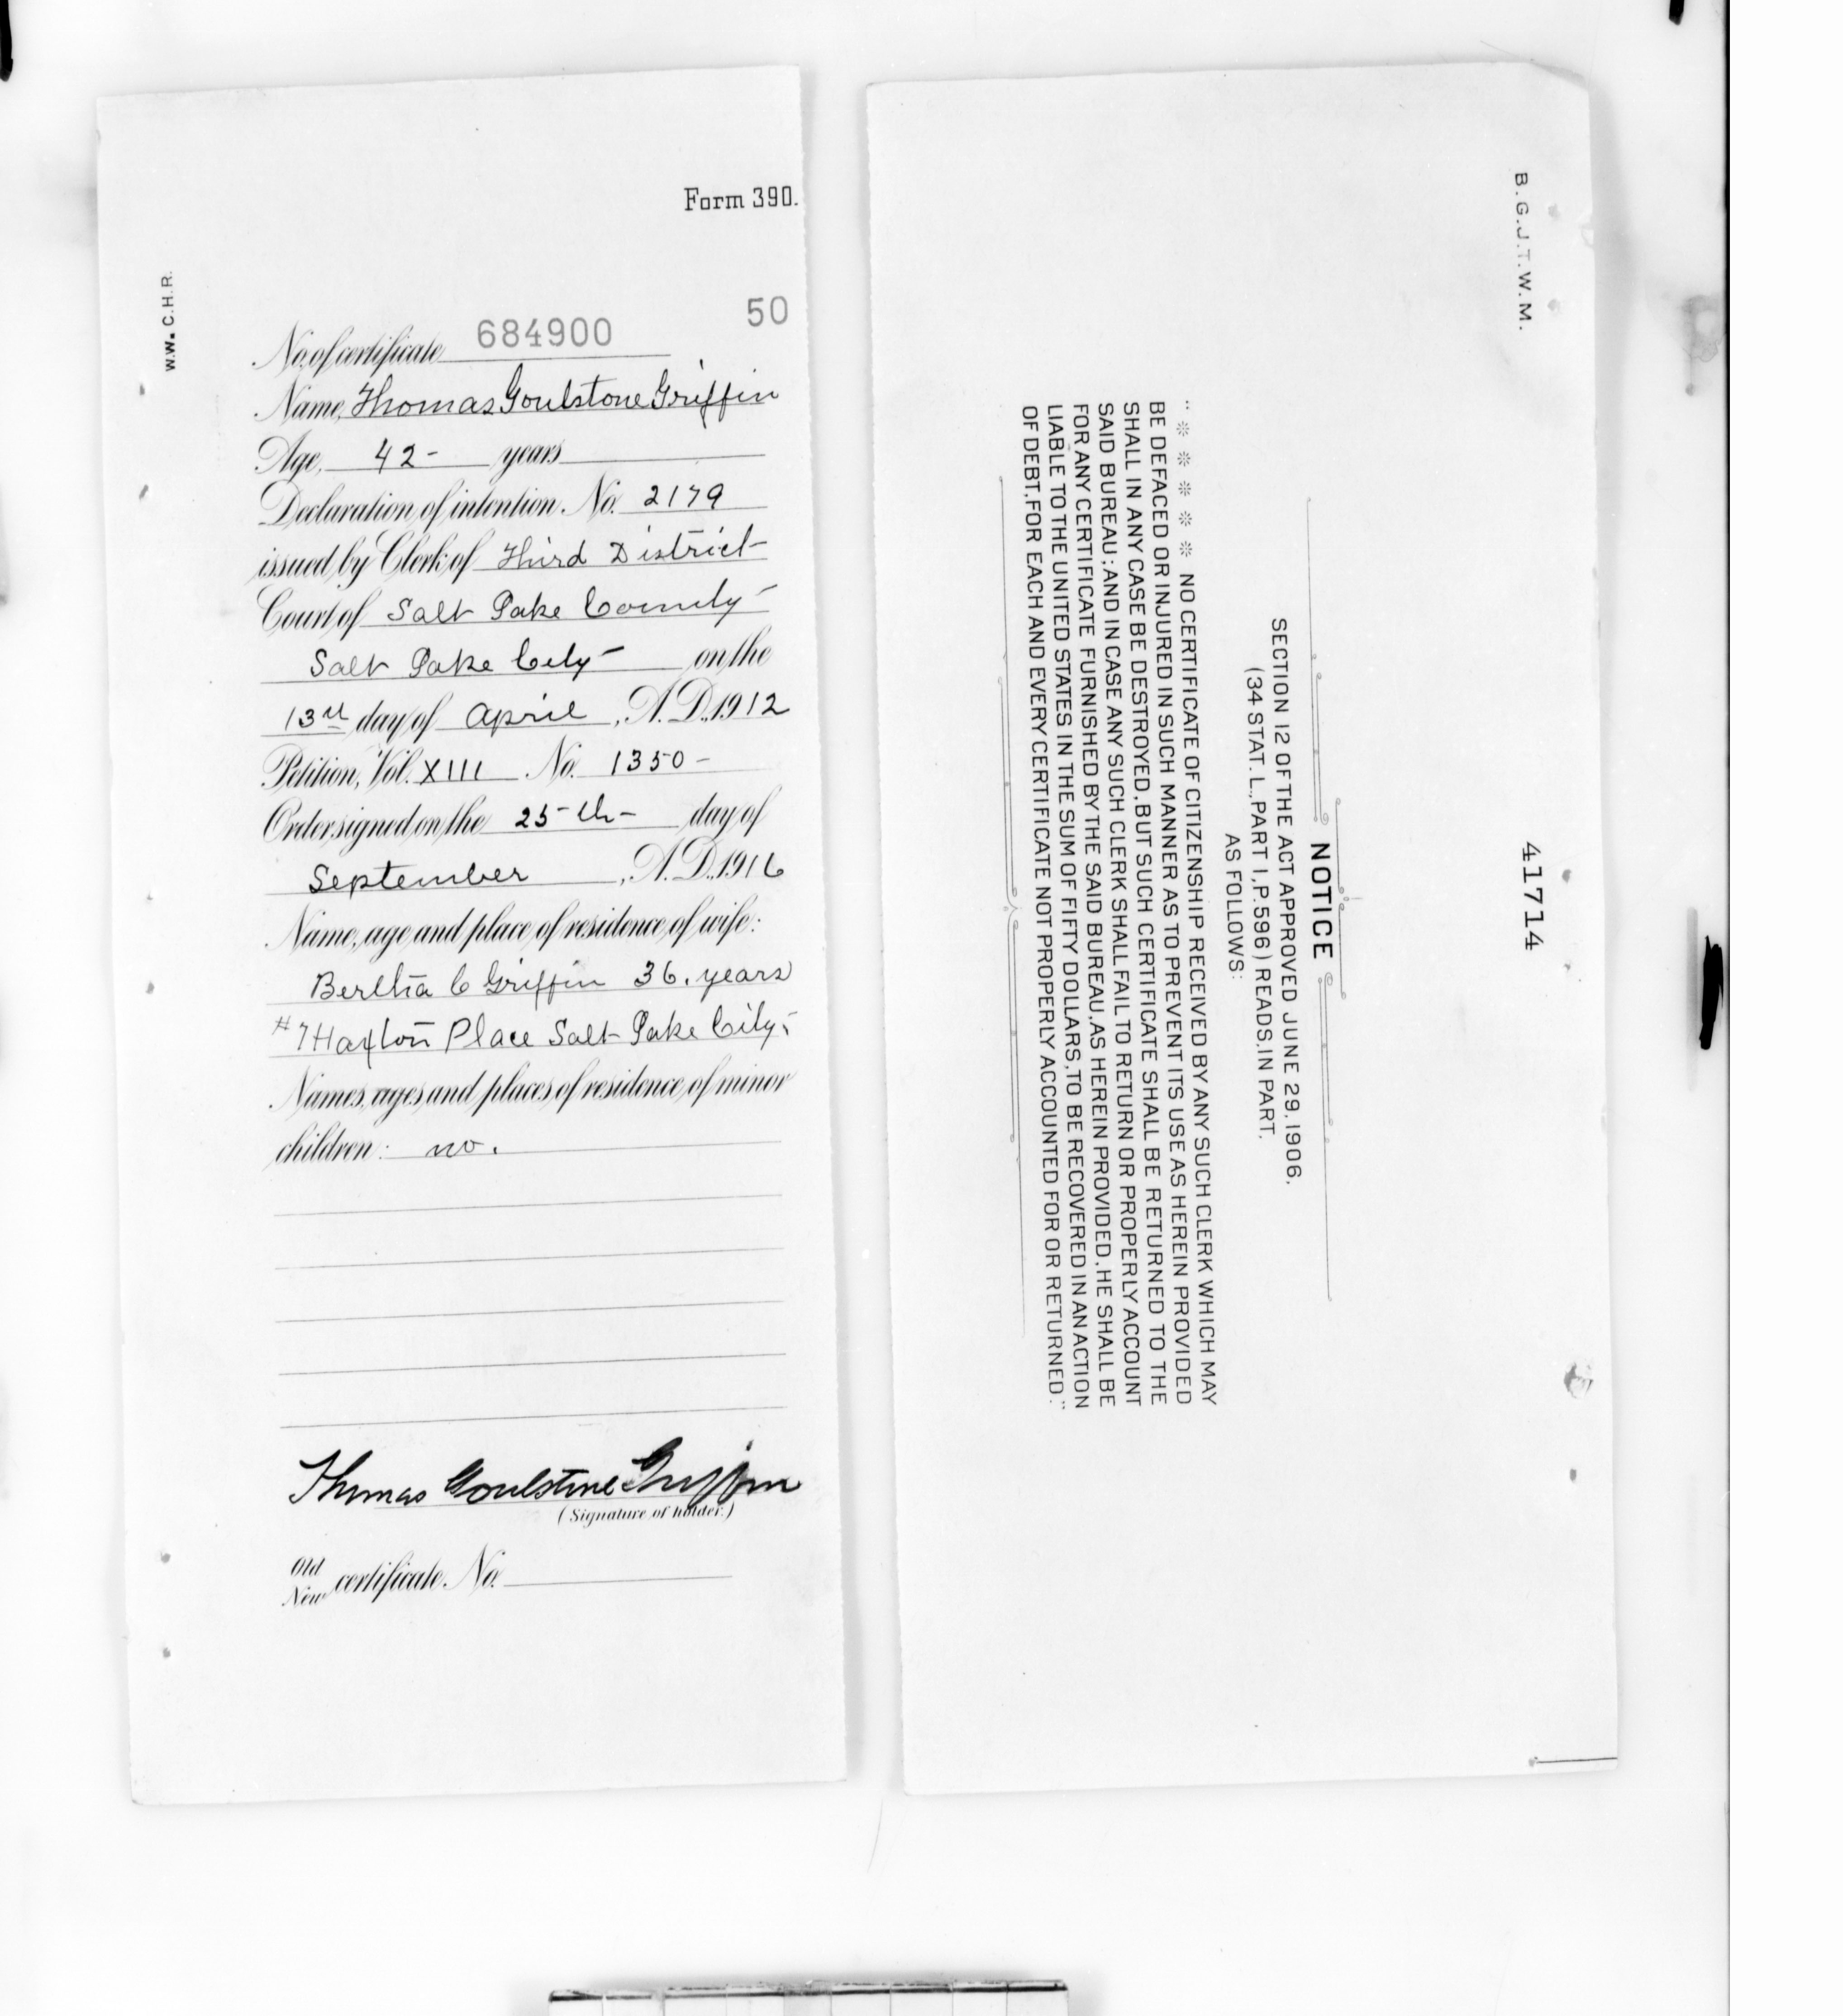 Form 390.
W.W. C.H.R.
50
No. of certificate 684900
Name, Thomas Goulstone Griffin
Age, 42- years
Declaration of intention. No. 2179
issued by Clerk of Third District
Court of Salt Lake County
Salt Lake City on the
13th day of April, A.D. 1912
Petition, Vol. XIII No. 1350-
Order signed on the 25-th- day of
September, A.D. 1916
Name, age and place of residence of wife:
Bertha C Griffin 36. years
#7 Haxton Place Salt Lake City.
Names, ages and places of residence of minor
children: no.
Thomas Goulstone Griffin
(Signature of holder.)
Old
New certificate. No.
B.G.J.T.W.M.
41714
NOTICE
SECTION 12 OF THE ACT APPROVED JUNE 29, 1906,
(34 STAT. L., PART I, P. 596) READS, IN PART,
AS FOLLOWS:
"※ ※ ※ ※ ※ NO CERTIFICATE OF CITIZENSHIP RECEIVED BY ANY SUCH CLERK WHICH MAY
BE DEFACED OR INJURED IN SUCH MANNER AS TO PREVENT ITS USE AS HEREIN PROVIDED
SHALL IN ANY CASE BE DESTROYED, BUT SUCH CERTIFICATE SHALL BE RETURNED TO THE
SAID BUREAU; AND IN CASE ANY SUCH CLERK SHALL FAIL TO RETURN OR PROPERLY ACCOUNT
FOR ANY CERTIFICATE FURNISHED BY THE SAID BUREAU, AS HEREIN PROVIDED, HE SHALL BE
LIABLE TO THE UNITED STATES IN THE SUM OF FIFTY DOLLARS, TO BE RECOVERED IN AN ACTION
OF DEBT, FOR EACH AND EVERY CERTIFICATE NOT PROPERLY ACCOUNTED FOR OR RETURNED."